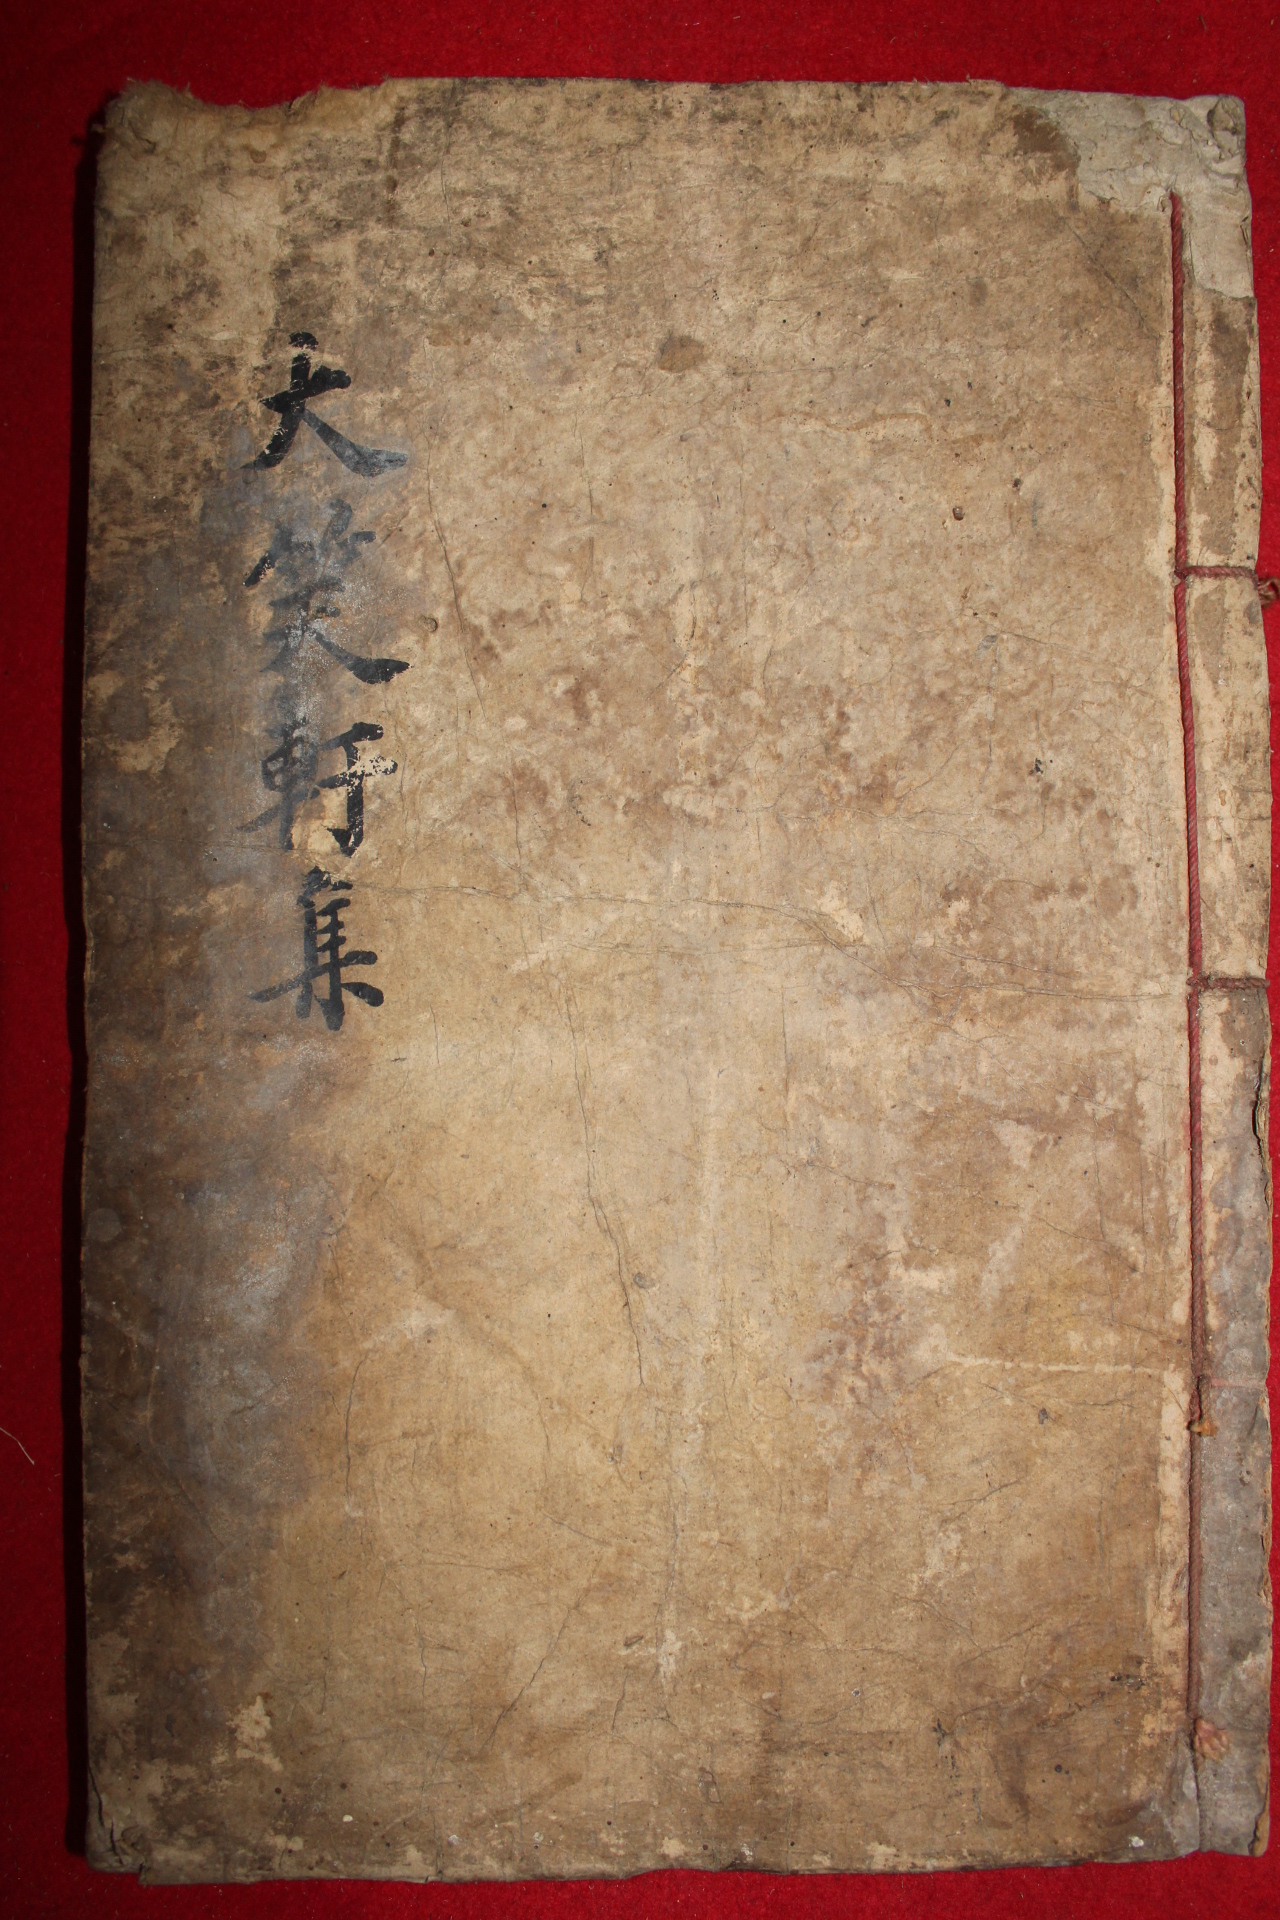 大笑軒集